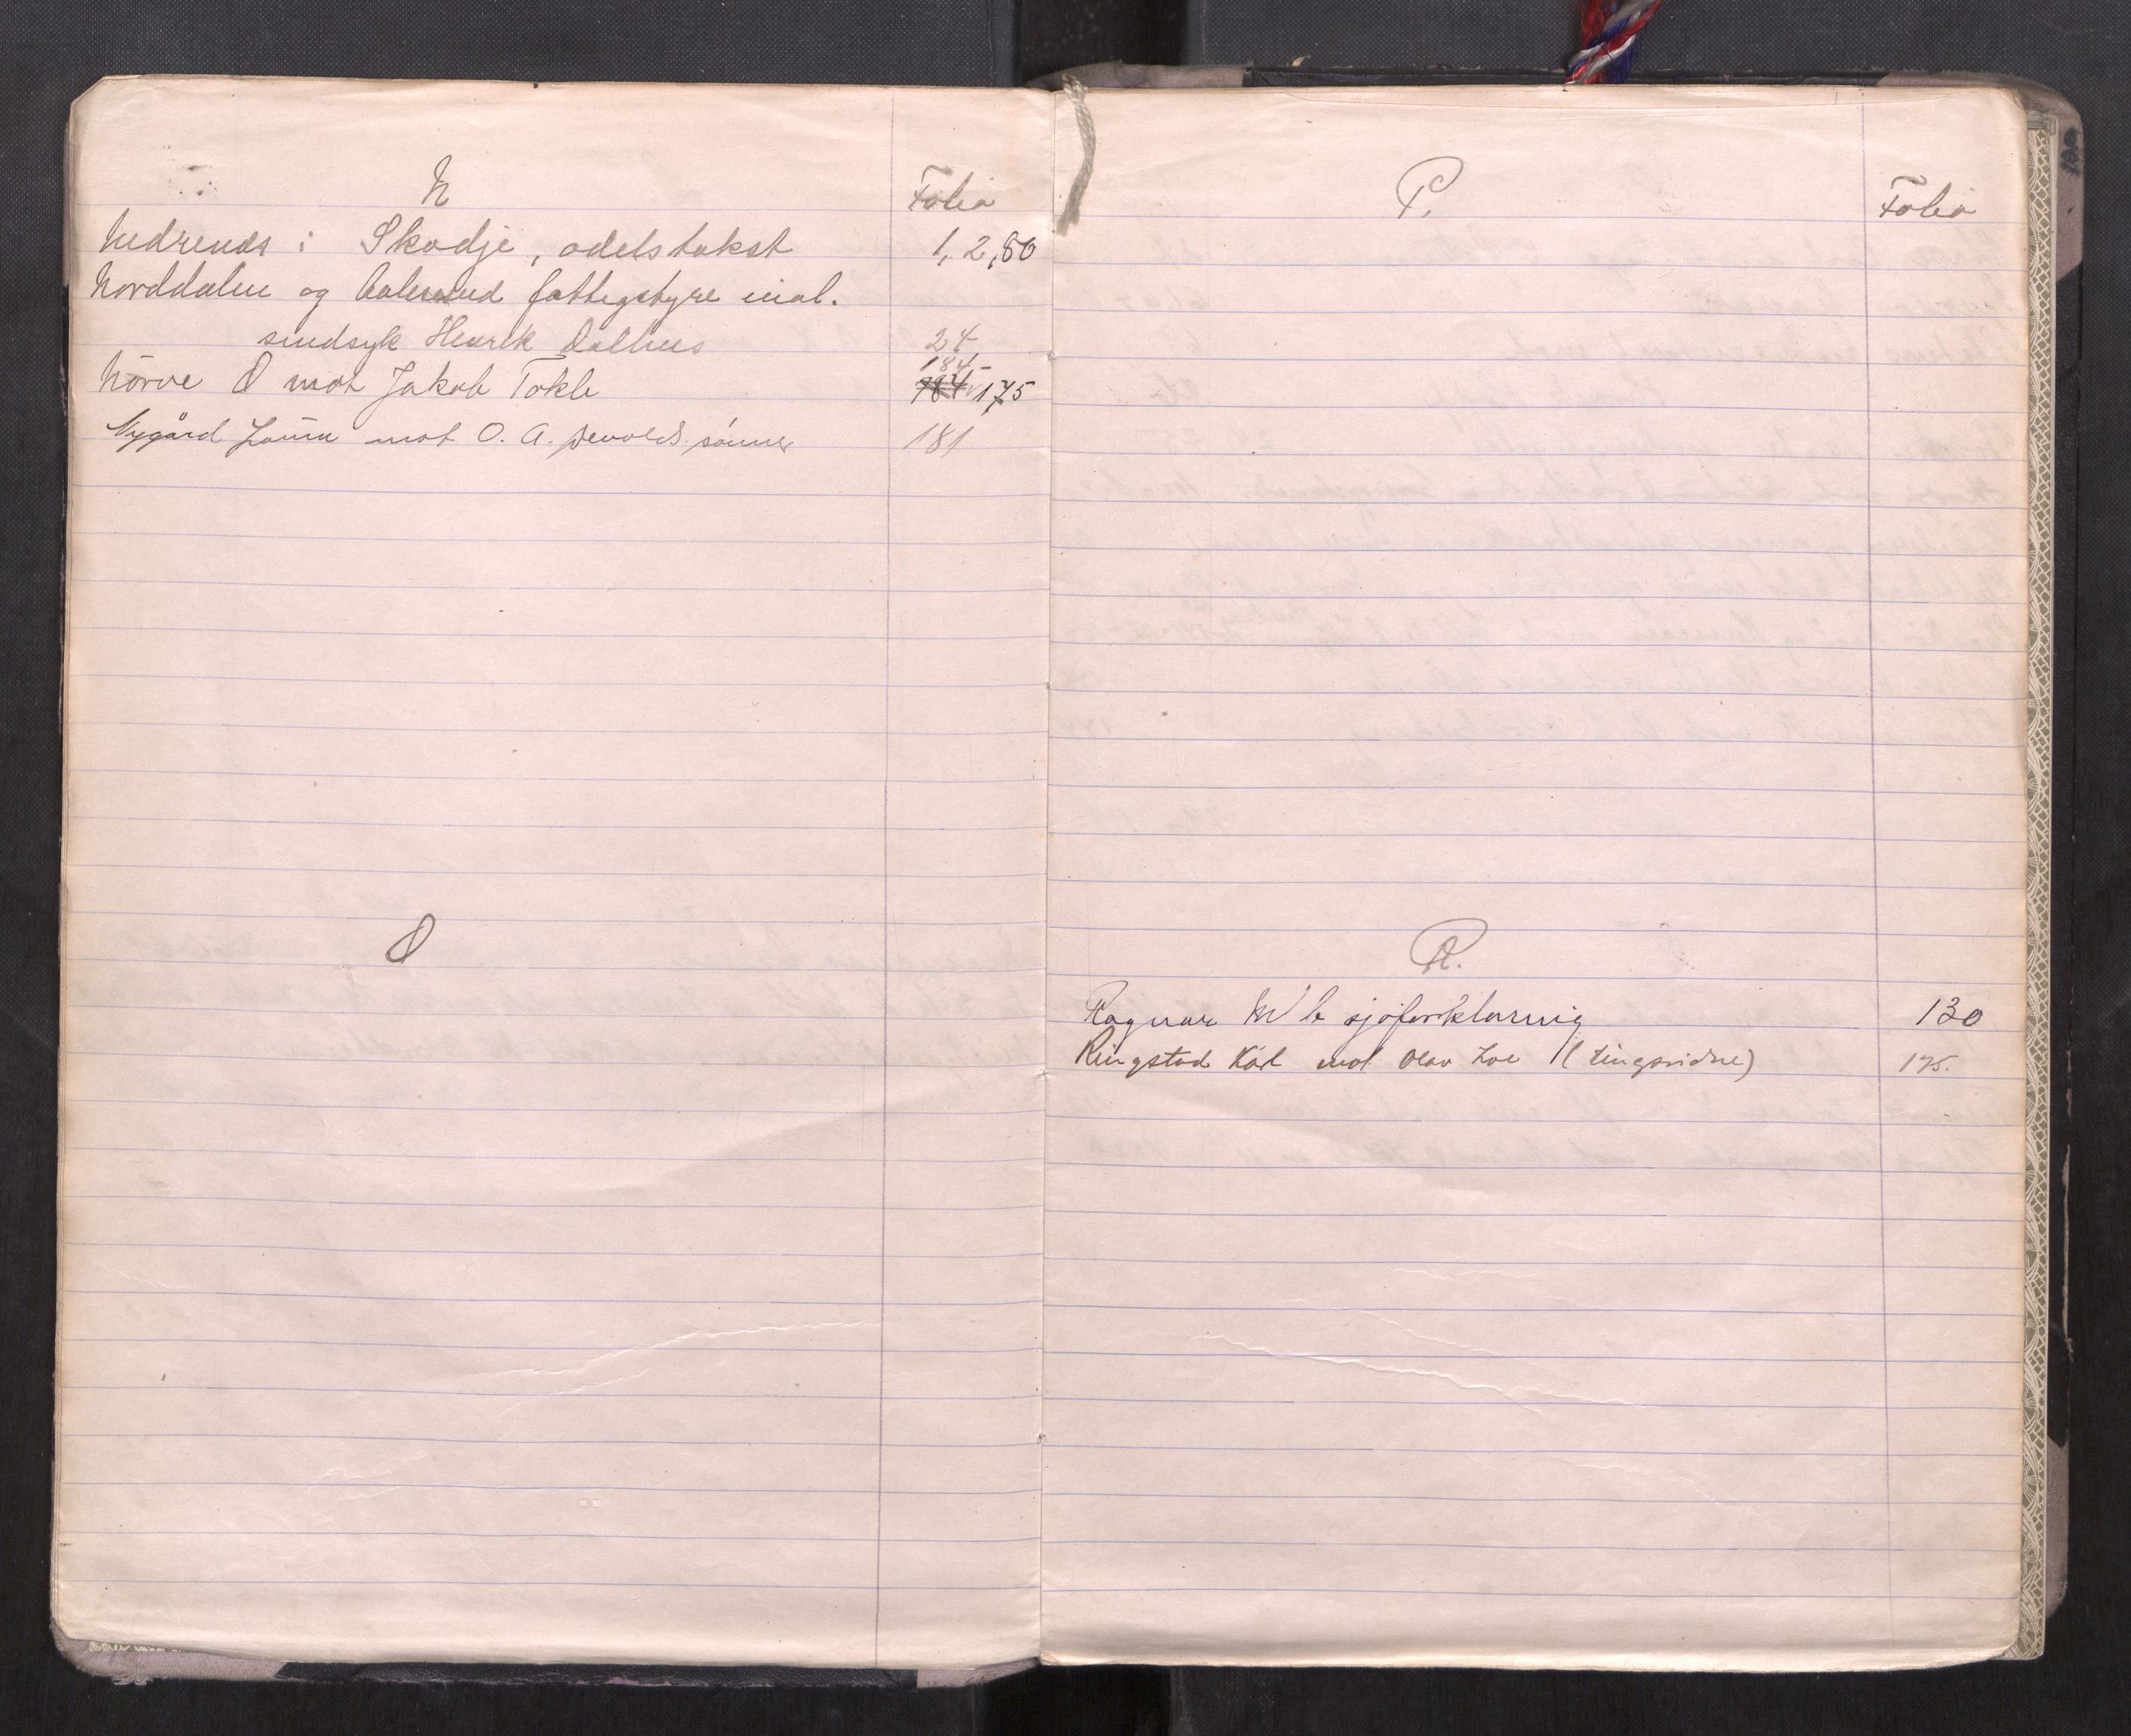 N
Folio
Nedrenes i Skodje, odelstakst 1, 2, 80
Norddalen og Aalesund fattigstyre innl.
sindsyk Henrik Dalhus 24
184
Nörve O mot Jakob Tokle 184 175
Nygård mot O. A. Devolds sönner 181
O
P.
Folio
R.
Ragnar M/b sjøforklaring 130
Ringstad Kåre mot Olav Loe (tingsvidne) 175.